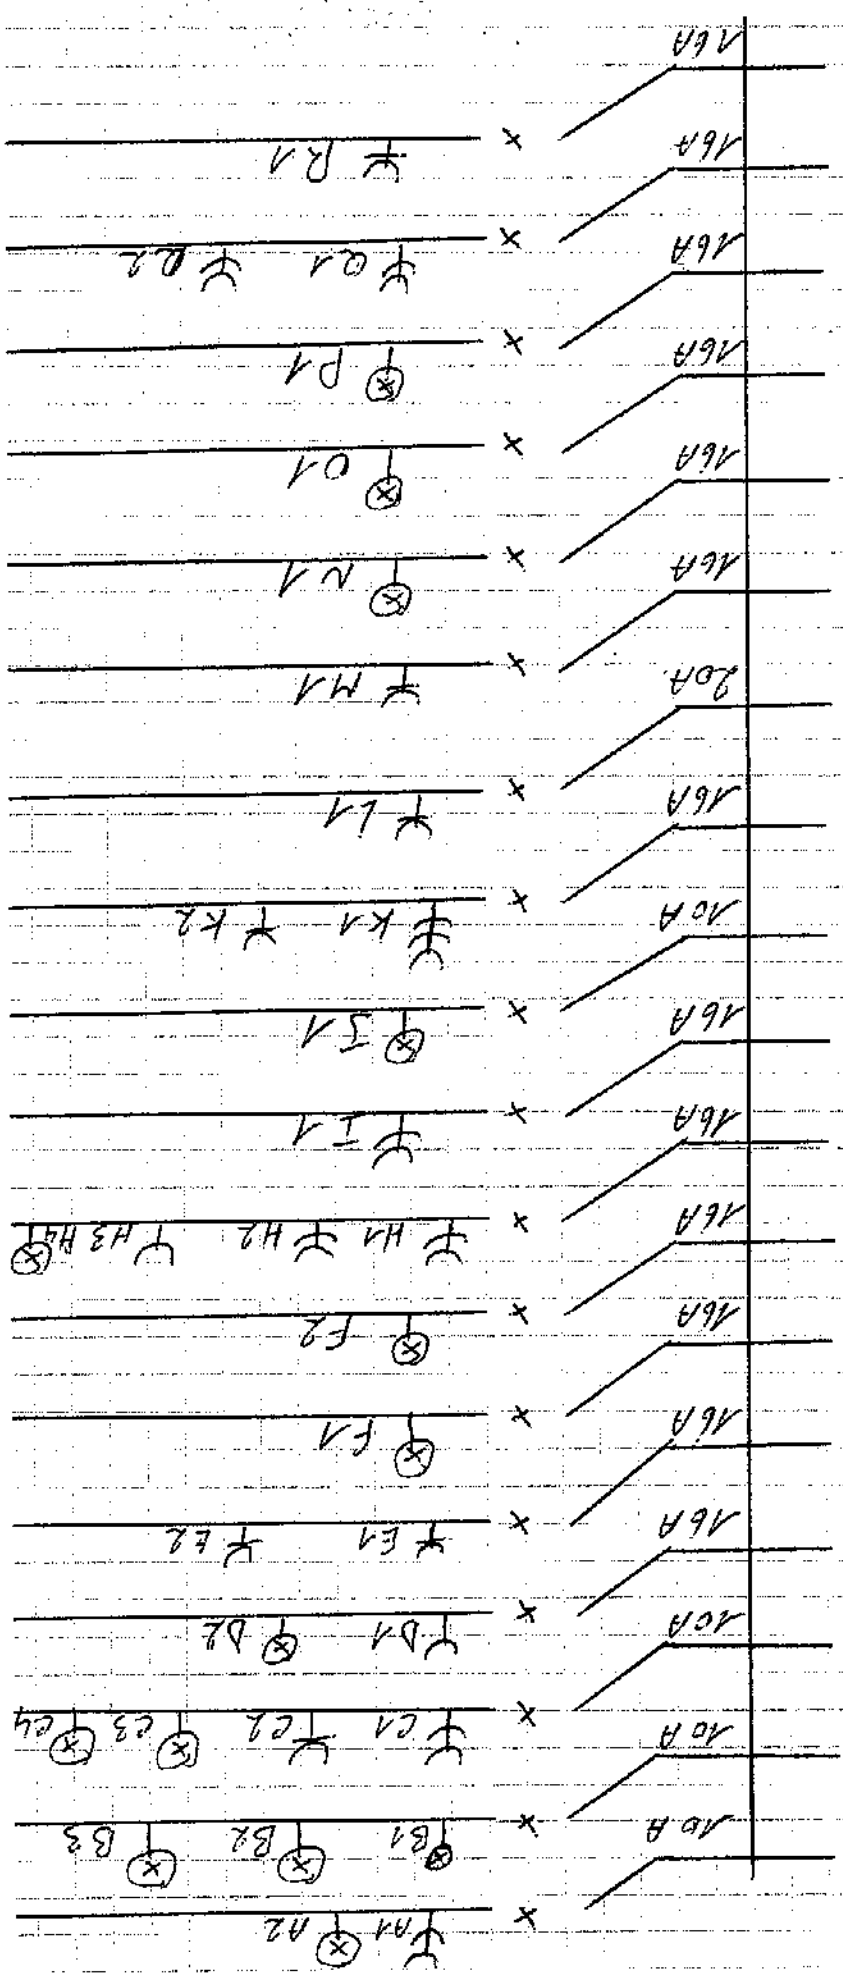 10A A1 A2
10A B1 B2 B3
10A C1 C2 C3 C4
16A D1 D2
16A E1 E2
16A F1
16A F2
16A H1 H2 H3 H4
16A I1
10A J1
16A K1 K2
20A L1
16A M1
16A N1
16A O1
16A P1
16A Q1 Q2
16A R1